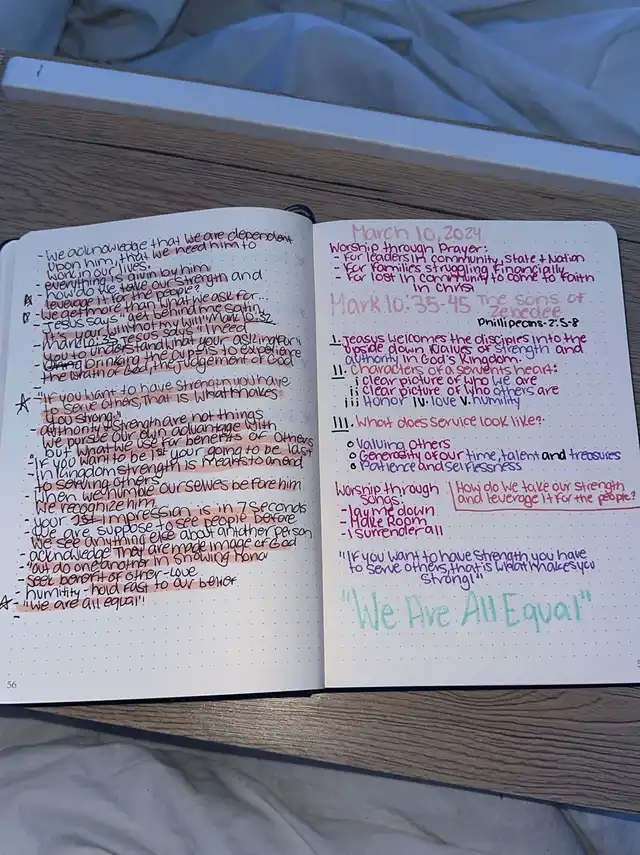 - We acknowledge that we are dependent
upon him, that we need him to
work in our lives.
- everything is givin by him
- how do we take our strength and
leverage it for the people?
- we get more than what we ask for...
- Jesus says "get behind me satin,
it's your will not my will" Mark 10:32
- Mark 10:35 Jesus says "I need
you to understand what your asking for"
- drinking of the cup is to experience
the wrath of God, the judgement of God
-
- "If you want to have strength you have
to serve others, that is what makes
you strong"
- authority & strength are not things
we pursue our own advantage with
but what we do for benefits of others
- "If you want to be 1st your going to be last
- In kingdom strength is means to an end
to serving others
- When we humble ourselves before him
we recognize him.
- your 1st impression is in 7 seconds
- we are suppose to see people before
we see anything else about another person
- acknowledge they are made image of God
- "out do one another in showing honor
- seek benefit of other - love
- humility - hold fast to our belief
- "We are all equal"!
-
56
March 10, 2024
Worship through Prayer:
- For leaders in community, state + Nation
- For families struggling financially
- For lost in community to come to faith
in Christ
Mark 10:35-45 The sons of
Zebedee
Phillipeans-2:5-8
I. Jeasys welcomes the disciples into the
upside down values of strength and
authority in God's Kingdom.
II. Characters of a servents heart:
i clear picture of who we are
ii clear picture of who others are
iii Honor iv. love v. humility
III. What does service look like?
Valuing others
Generosity of our time, talent and treasures
Patience and selflessness
Worship through
songs:
- lay me down
- Make Room
- I surrender all
How do we take our strength
and leverage it for the people?
"If you want to have strength you have
to serve others, that is what makes you
strong!"
"We Are All Equal"